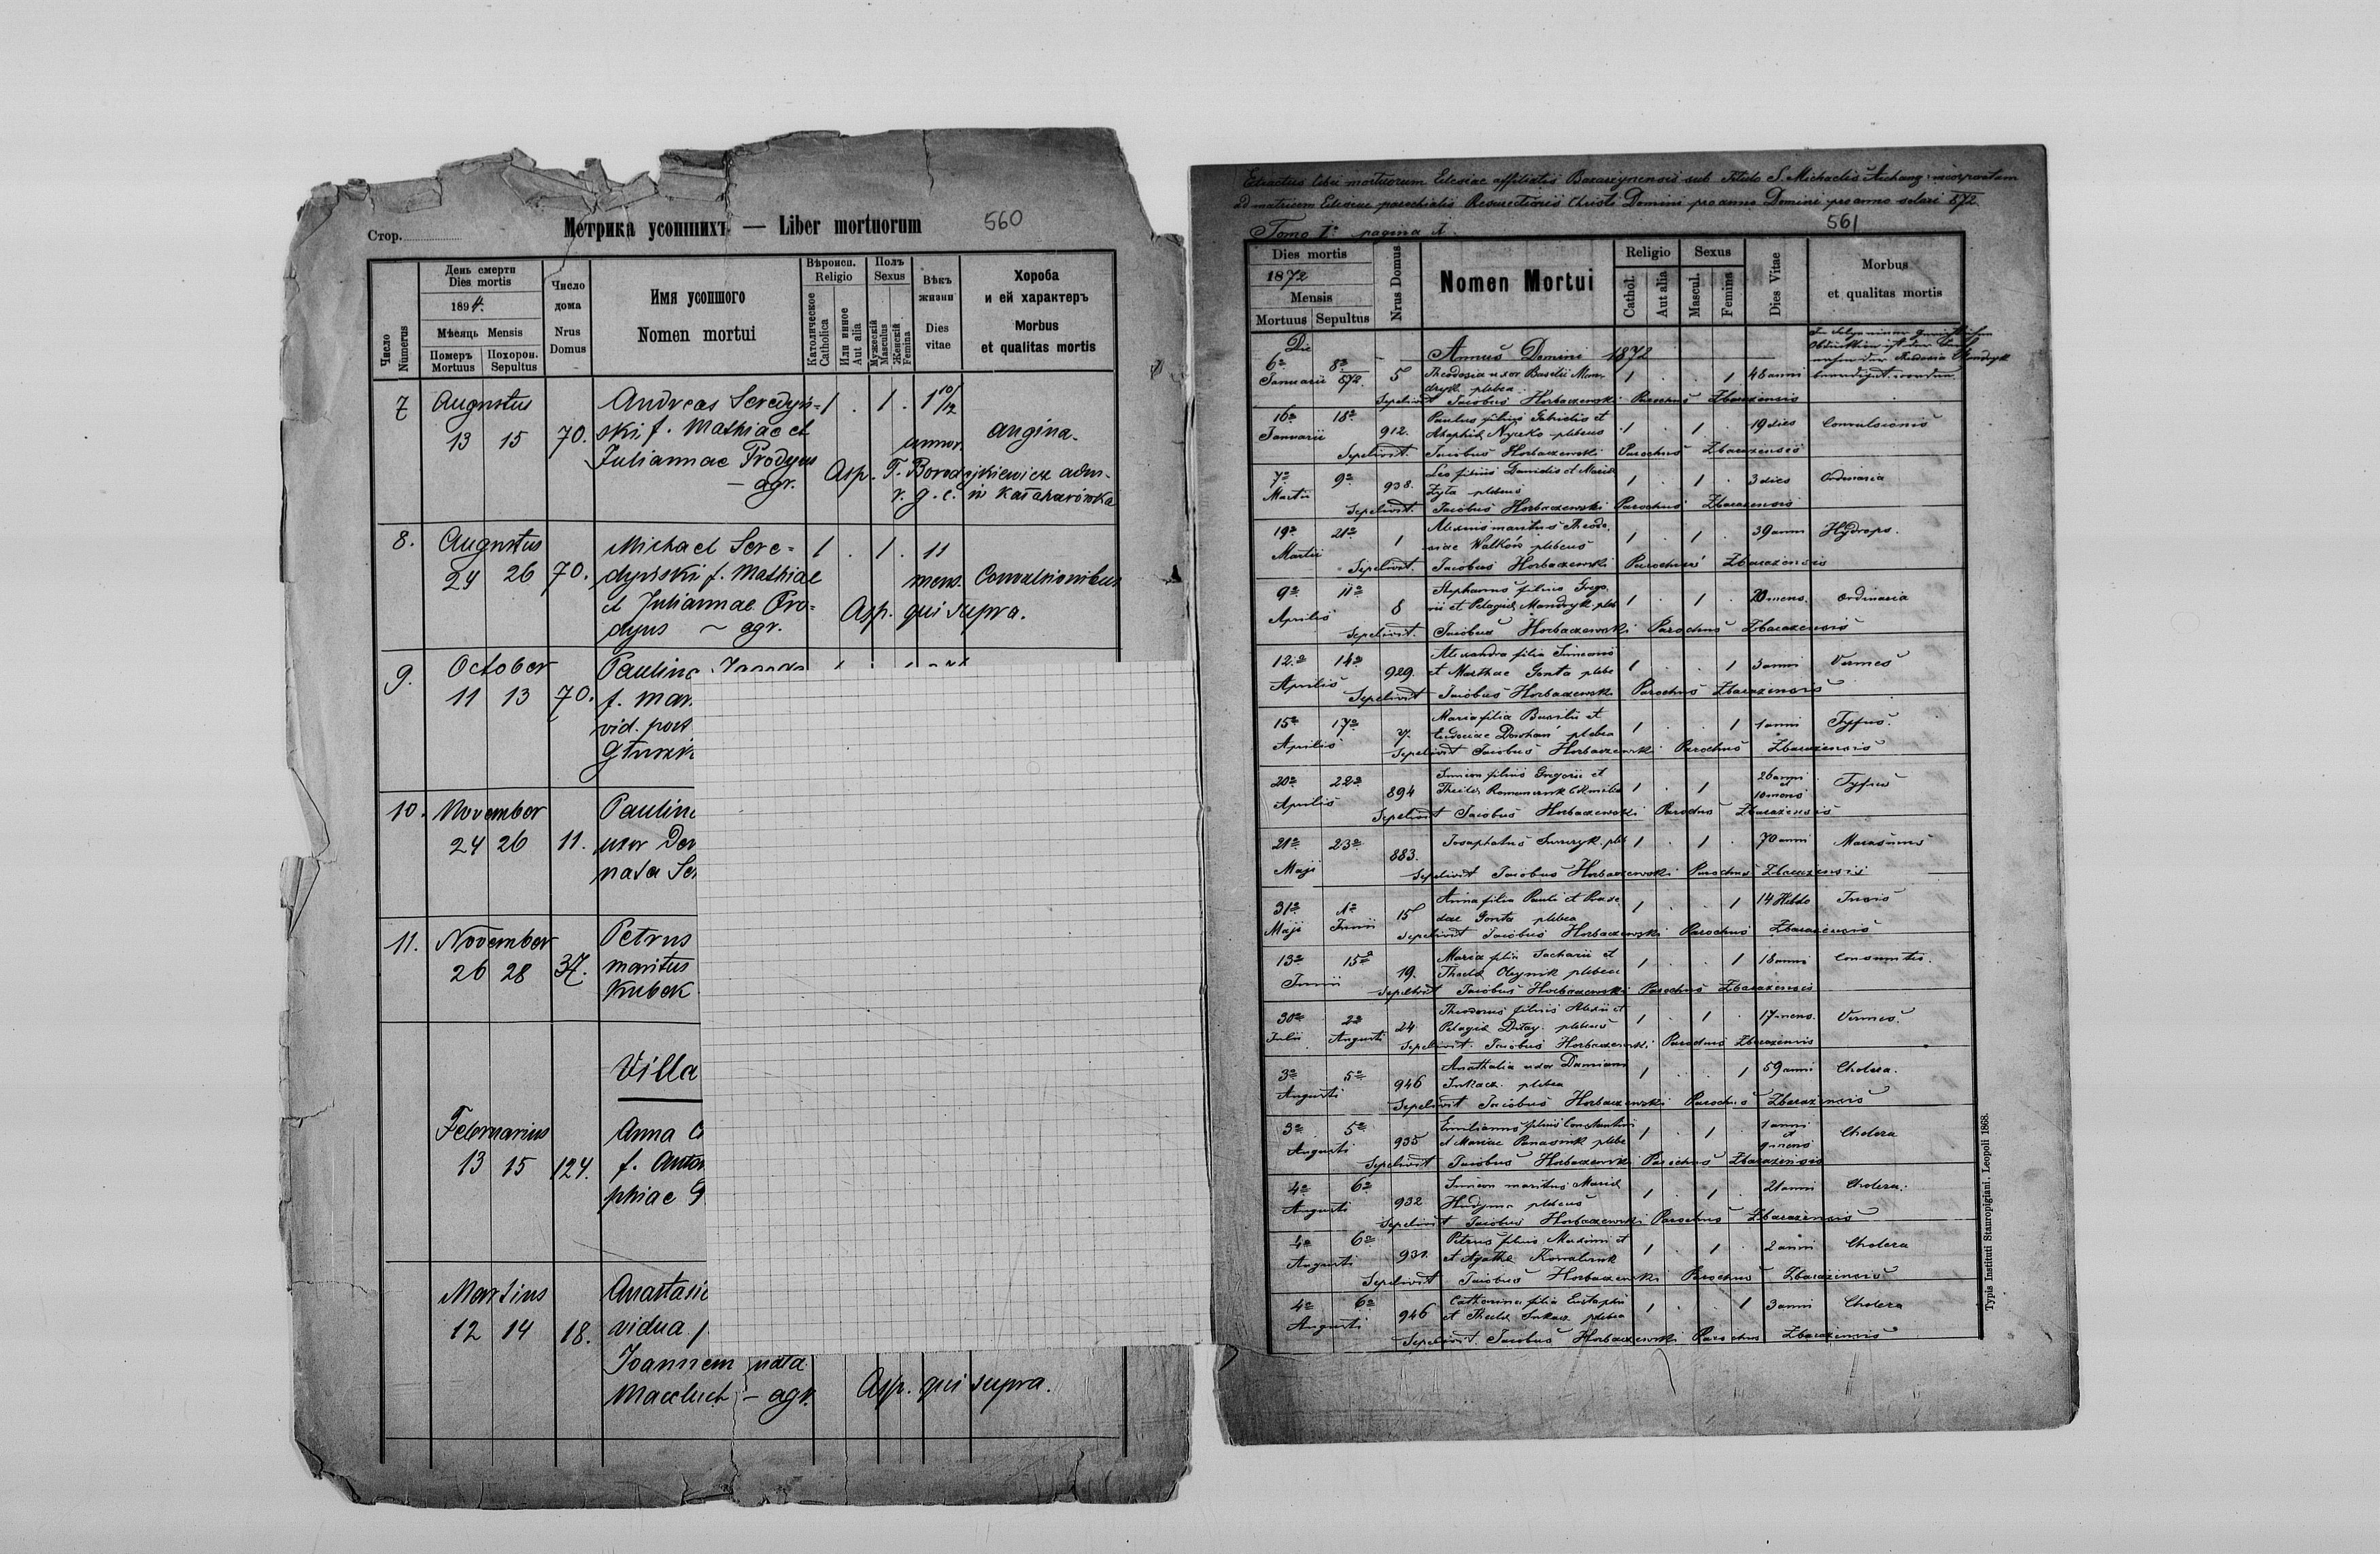 Стор.
Метрика усопшихъ — Liber mortuorum
560
Число Numerus
День смерти
Dies mortis
1894.
Мѣсяць Mensis
Померъ Mortuus
Похорон. Sepultus
Число дома
Nrus Domus
Имя усопшого
Nomen mortui
Вѣроисп. Religio
Католическое Catholica
Или инное Aut alia
Полъ Sexus
Мужескій Masculus
Женскій Femina
Вѣкъ жизни
Dies vitae
Хороба
и ей характеръ
Morbus
et qualitas mortis
7 Augustus Andreas Seredyń= 1 . 1 . 1 10/12
13 15 70. ski f. Mathiae et annor. angina.
Juliannae Prodyus Asp. T.
— agr. r. g. c. in
8. Augustus Michael Sere= 1 . 1 . 11
24 26 70. dyński f. Mathiae mens. Convulsionibus
et Juliannae Pro= Asp. qui supra.
dyus — agr.
9. October Paulina
11 13 70. f.
vid. post
10. November
24 26 11. uxor
nata
11. November Petrus
26 28 37. maritus
Kubek
Villa
Februarius Anna
13 15 124. f.
phiae
Martius
12 14 18. vidua
Joannem nata
— agr. Asp. qui supra.
Extractus libri mortuorum Eclesiae affiliatis Bazarzyncensis sub Titulo S. Michaelis Archang. incorporatam
ad matricem Eclesiae parochialis Resurectionis Christi Domini pro anno Domini pro anno solari 872.
561
Tomo I° pagina 1.
Dies mortis
1872
Mensis
Mortuus Sepultus
Nrus Domus
Nomen Mortui
Religio
Cathol. Aut alia
Sexus
Mascul. Femina
Dies Vitae
Morbus
et qualitas mortis
Die Annus Domini 1872
6ª 8ª
Januarii 872. 5 Theodosia uxor Basilii Man- 1 . . 1 48 anni
dryk plebea
Sepelivit Jacobus Horbaczewski Parochus Zbarazensis
16ª 18ª Paulus filius Gabrielis et
Januarii 912. Nyczko plebeus 1 . 1 . 19 dies Convulsionis
Sepelivit. Jacobus Horbaczewski Parochus Zbarazensis
7ª 9ª Leo filius Danielis et Mariae
Martii 938. Zyła plebeus 1 . 1 . 3 dies Ordinaria
Sepelivit. Jacobus Horbaczewski Parochus Zbarazensis
19ª 21ª Alexius maritus Theodo-
Martii 1 siae Walków plebeus 1 . 1 . 39 anni Hydrops.
Sepelivit. Jacobus Horbaczewski Parochus Zbarazensis
9ª 11ª Stephanus filius Grego-
Aprilis 8 rii et Pelagiae Mandryk pleb 1 . 1 . 20 mens. Ordinaria
Sepelivit. Jacobus Horbaczewski Parochus Zbarazensis
12ª 14ª Alexandra filia Simeonis
Aprilis 929. et Marthae Gonta plebe 1 . . 1 3 anni Vermes
Sepelivit Jacobus Horbaczewski Parochus Zbarazensis
15ª 17ª Maria filia Basilii et
Aprilis 7. Eudociae plebea 1 . . 1 1 anni Tyfus.
Sepelivit Jacobus Horbaczewski Parochus Zbarazensis
20ª 22ª Simeon filius Gregorii et 26 anni et
Aprilis 894 Theclae 1 . 1 10 mens Tyfus
Sepelivit Jacobus Horbaczewski Parochus Zbarazensis
21ª 23ª Josaphatus pleb 1 . 1 . 70 anni Marasmus
Maji 883.
Sepelivit Jacobus Horbaczewski Parochus Zbarazensis
31ª 1ª Anna filia Pauli et
Maji Junii 15 Gonta plebea 1 . . 1 14 Hebdo Tussis
Sepelivit Jacobus Horbaczewski Parochus Zbarazensis
13ª 15ª Maria filia Zacharii et
Junii 19. Theclae Oleynik plebea 1 . . 1 18 anni Consumtio.
Sepelivit Jacobus Horbaczewski Parochus Zbarazensis
30ª 2ª Theodorus filius Alexii et
Julii Augusti 24 Pelagiae plebeus 1 . 1 . 17 mens. Vermes.
Sepelivit. Jacobus Horbaczewski Parochus Zbarazensis
3ª 5ª Anathalia uxor Damiani
Augusti 946 plebea 1 . . 1 59 anni Cholera.
Sepelivit Jacobus Horbaczewski Parochus Zbarazensis
3ª 5ª Emilianus filius Constantini 1 anni et
Augusti 935 et Mariae Panasiuk plebe 1 . 1 . 9 mens Cholera
Sepelivit Jacobus Horbaczewski Parochus Zbarazensis
4ª 6ª Simeon maritus Mariae
Augusti 932 Hudyma plebeus 1 . 1 . 21 anni Cholera.
Sepelivit Jacobus Horbaczewski Parochus Zbarazensis
4ª 6ª Petrus filius Maximi et
Augusti et Agathae Kowalczuk 1 . 1 . 2 anni Cholera
Sepelivit Jacobus Horbaczewski Parochus Zbarazensis
4ª 6ª Catharina filia Eustaphii
Augusti 946 et Theclae plebea 1 . . 1 3 anni Cholera
Sepelivit. Jacobus Horbaczewski Parochus Zbarazensis
Typis Instituti Stauropigiani. Leopoli 1868.